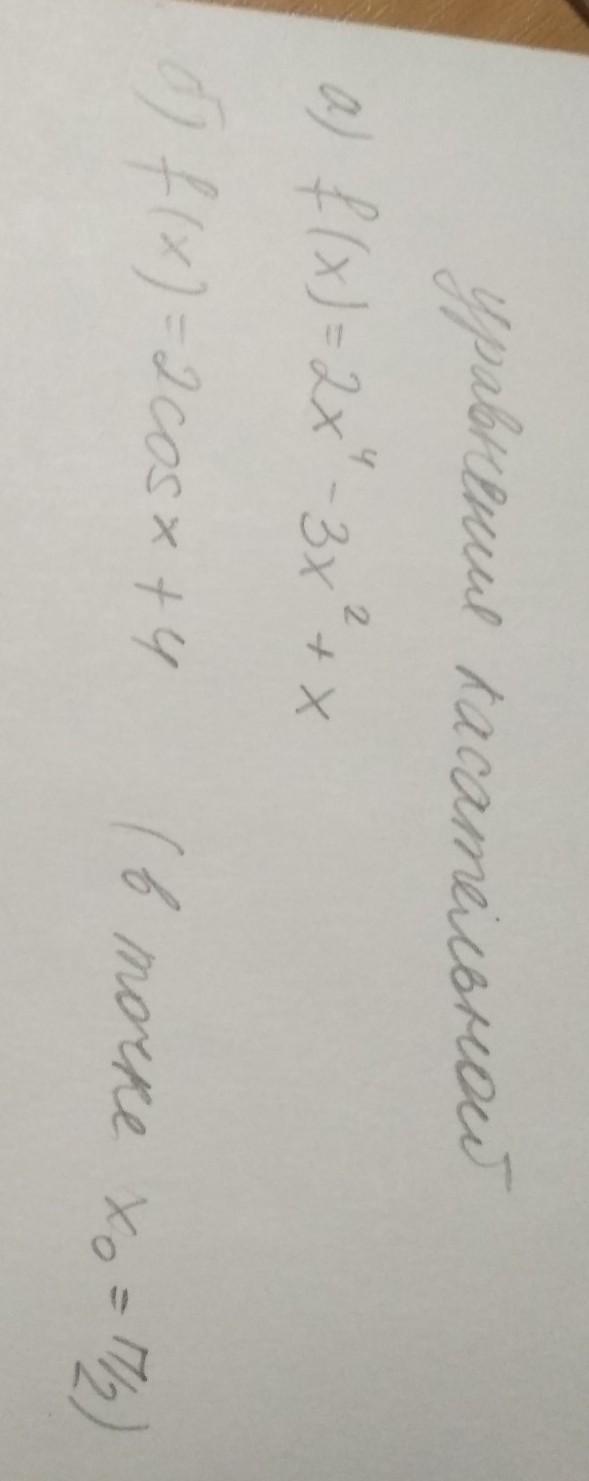 Уравнение касательной
а) f(x)=2x⁴-3x²+x
б) f(x)=2cosx+4 (в точке x₀=π/2)